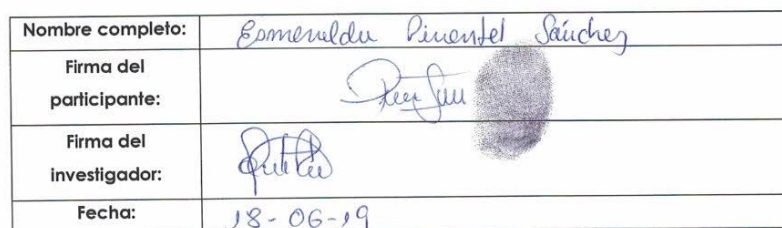 Nombre completo: Esmeralda Pimentel Sánchez
Firma del
participante:
Firma del
investigador:
Fecha: 18-06-19